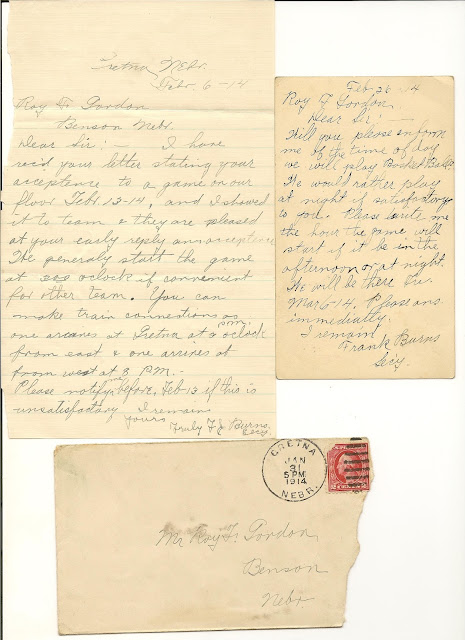 Gretna Nebr.
Febr. 6-14
Roy F Gordon
Benson Nebr.
Dear Sir:- I have
rec'd your letter stating your
acceptance to a game on our
floor Feb. 13-14, and I showed
it to team & they are pleased
at your early reply, an acceptance
We generally start the game
at oclock if convenient
for other team. You can
make train connections as
one arrives at Gretna at oclock
P.M.
from east & one arrives at
from west at 3 P.M.-
Please notify before Feb-13 if this is
unsatisfactory I remain
yours
Truly F J Burns.
Secy.
Feb. 26-14
Roy F Gordon,
Dear Sir:-
Will you please inform
me of the time of day
we will play Basket Ball.
We would rather play
at night if satisfactory
to you. Please write me
the hour the game will
start if it be in the
afternoon or at night.
We will be there Fri.
Mar 6-14. Please ans
immediatly.
I remain
Frank Burns
Secy.
GRETNA
JAN
31
5 PM
1914
NEBR.
Mr Roy F. Gordon
Benson
Nebr